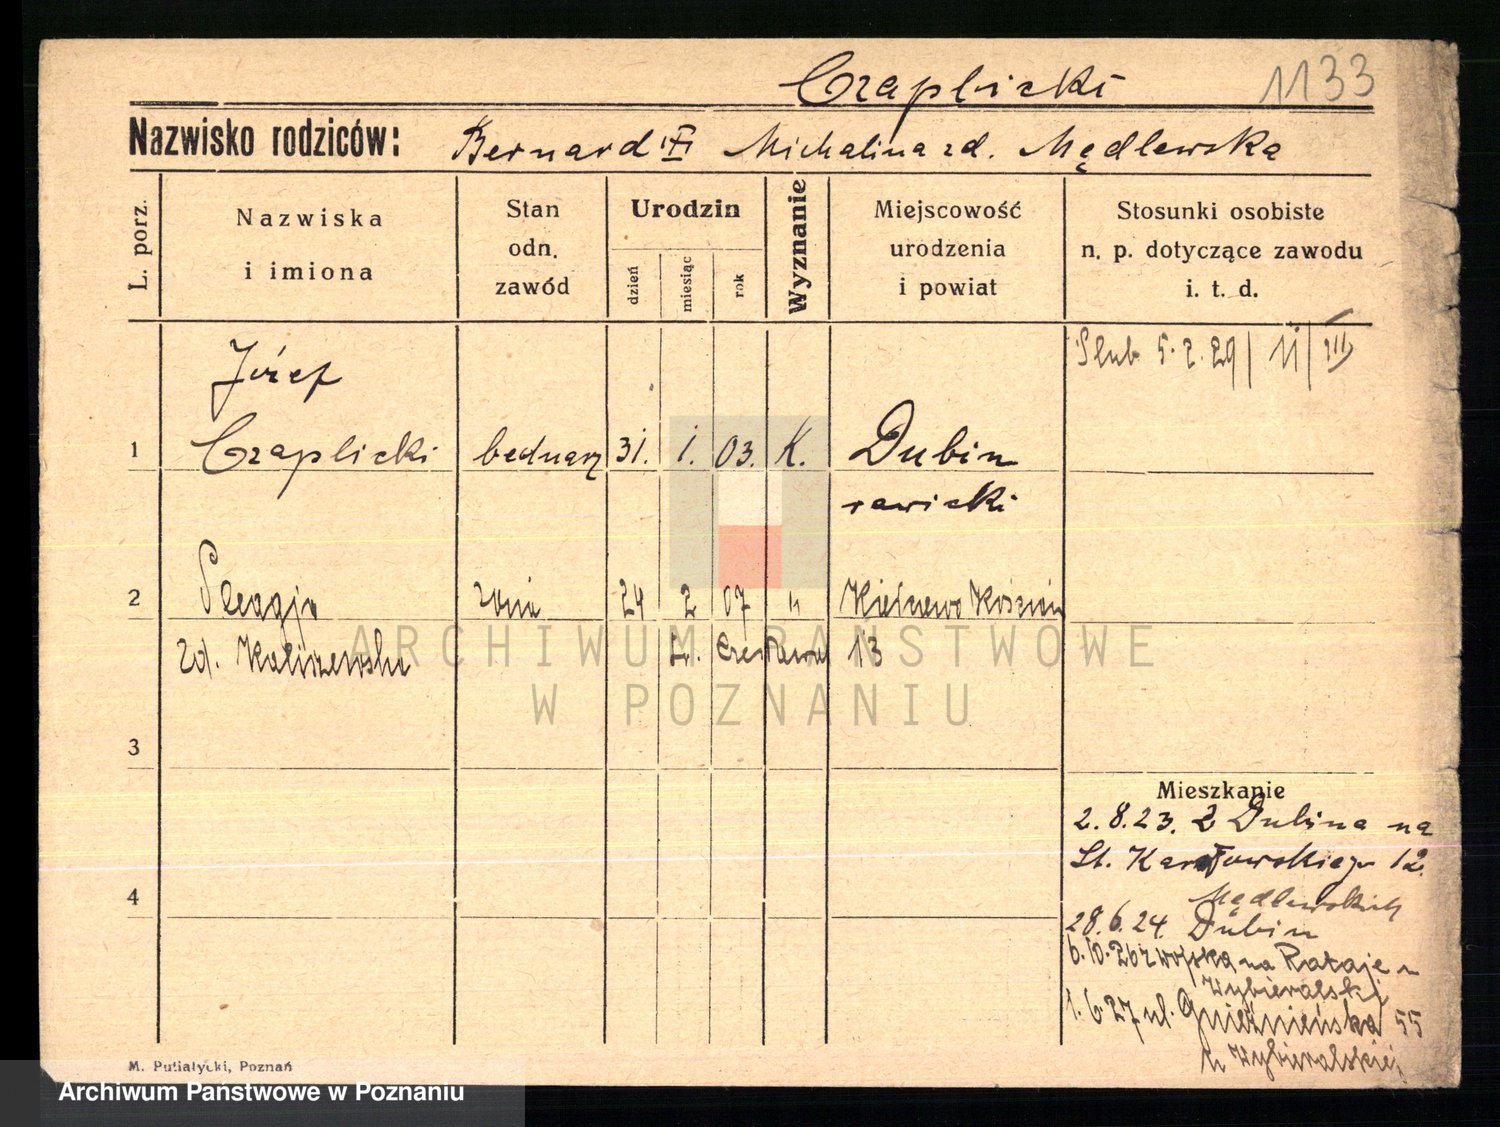 Czaplicki 1133
Nazwisko rodziców: Bernard Michalina zd. Mądlewska
L. porz.
Nazwiska
i imiona
Stan
odn.
zawód
Urodzin
dzień
miesiąc
rok
Wyznanie
Miejscowość
urodzenia
i powiat
Stosunki osobiste
n. p. dotyczące zawodu
i. t. d.
Ślub 5. 2. 29 / 11 / III
Józef
1 Czaplicki bednarz 31. 1. 03. K. Dubin
rawicki
2 Pelagja żona 24 2 07 " Kiełczewo Kościan
zd. Kaliszewska 13
3
4
Mieszkanie
2.8.23. z Dubina na
12.
Mądlewskich
28.6.24. Dubin
6.10.26 z wojska na Rataje
Wybieralski
1.6.27 ul. Gnieźnieńska 55
u Wybieralskiej
M. Putiatycki, Poznań
ARCHIWUM PAŃSTWOWE
W POZNANIU
Archiwum Państwowe w Poznaniu